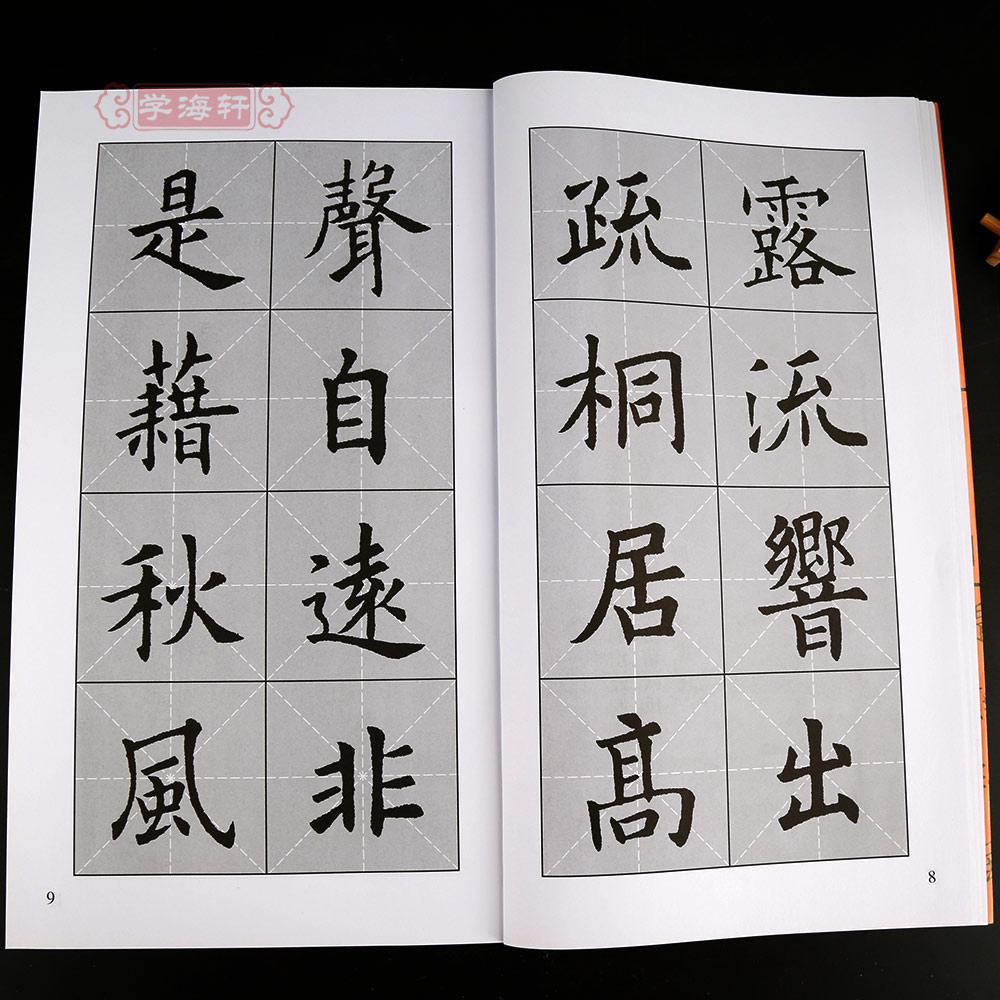 学海轩
露流響出
疏桐居髙
8
聲自遠非
是藉秋風
9